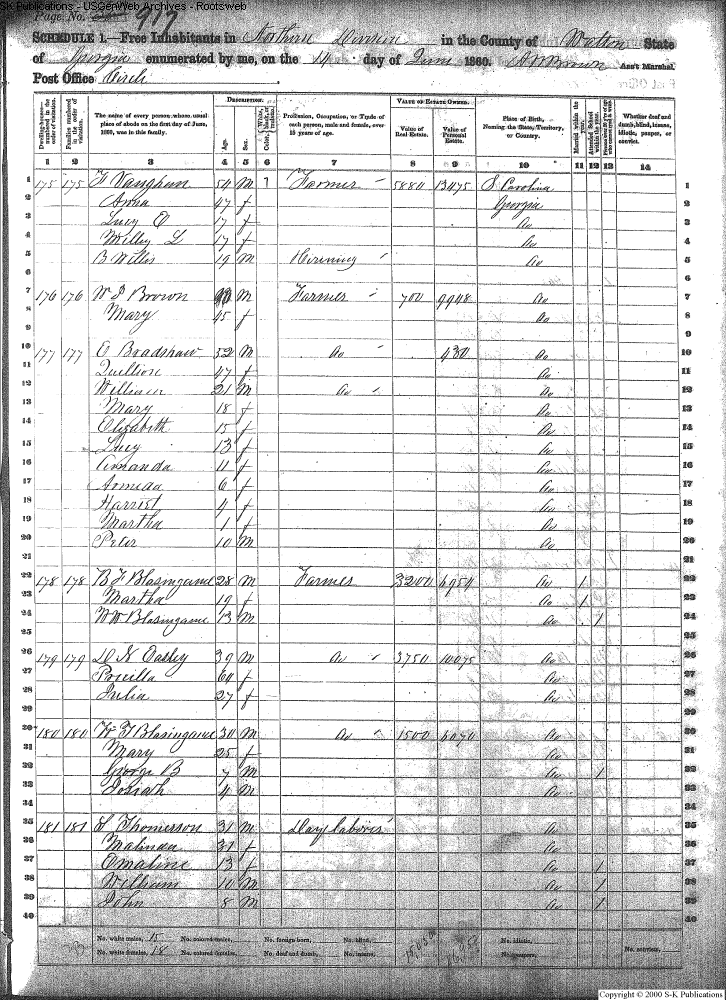 S-K Publications - USGenWeb Archives - Rootsweb
Page No. 919
SCHEDULE 1.—Free Inhabitants in Northern Division in the County of Walton State
of Georgia enumerated by me, on the 14 day of June 1860. Ass't Marshal.
Post Office Circle
DESCRIPTION. VALUE OF ESTATE OWNED.
Dwelling-houses—numbered in the order of visitation. Families numbered in the order of visitation. The name of every person whose usual place of abode on the first day of June, 1860, was in this family. Age. Sex. Color, Profession, Occupation, or Trade of each person, male and female, over 15 years of age. Value of Real Estate. Value of Personal Estate. Place of Birth, Naming the State, Territory, or Country. Married within the year. Attended School within the year. Whether deaf and dumb, blind, insane, idiotic, pauper, or convict.
1 2 3 4 5 6 7 8 9 10 11 12 13 14
1 175 175 Vaughan 54 M 1 Farmer 5880 13475 S Carolina 1
2 Anna 47 f Georgia 2
3 Lucy 17 f Do 3
4 Milley L 17 f Do 4
5 B Willis 19 M Do 5
6 6
7 176 176 Brown M Farmer 700 9948 Do 7
8 Mary 45 f Do 8
9 9
10 177 177 Bradshaw 52 M Do 430 Do 10
11 47 f Do 11
12 William 21 M Do Do 12
13 Mary 18 f Do 13
14 Elizabeth 15 f Do 14
15 Lucy 13 f Do 15
16 Amanda 11 f Do 16
17 Armeda 6 f Do 17
18 Harriet 4 f Do 18
19 Martha 1 f Do 19
20 Peter 10 M Do 20
21 21
22 178 178 B F Blasingame 28 M Farmer 3200 6950 Do 1 22
23 Martha 19 f Do 1 23
24 W W Blasingame 13 M Do 1 24
25 25
26 179 179 39 M Do 3750 10075 Do 26
27 60 f Do 27
28 Julia 27 f Do 28
29 29
30 180 180 W F Blasingame 30 M Do 1500 6070 Do 30
31 Mary 25 f Do 31
32 George B 7 M Do 1 32
33 Josiah 4 M Do 33
34 34
35 181 181 Thomerson 31 M Day laborer Do 35
36 Malinda 31 f Do 36
37 Emaline 13 f Do 1 37
38 William 10 M Do 1 38
39 John 8 M Do 1 39
40 40
No. white males, 15 No. colored males, No. foreign born, No. blind, No. idiotic,
No. white females, 18 No. colored females, No. deaf and dumb, No. insane, No. paupers, No. convicts,
Copyright © 2000 S-K Publications